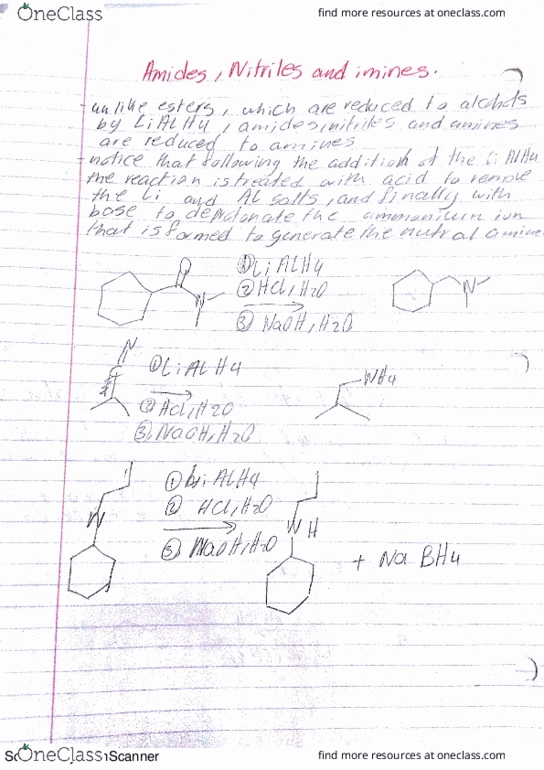 OneClass
find more resources at oneclass.com
Amides, Nitriles and imines.
- unlike esters, which are reduced to alcohols
by LiAlH4, amides, nitriles and amines
are reduced to amines
- notice that following the addition of the LiAlH4
the reaction is treated with acid to remove
the Li and Al salts, and finally with
base to deprotonate the ammonium ion
that is formed to generate the nutral amine
O
① LiAlH4
② HCl, H2O
③ NaOH, H2O
N
N
N
① LiAlH4
② HCl, H2O
③ NaOH, H2O
NH4
① LiAlH4
② HCl, H2O
③ NaOH, H2O
N
NH
+ NaBH4
OneClass
Scanner
find more resources at oneclass.com